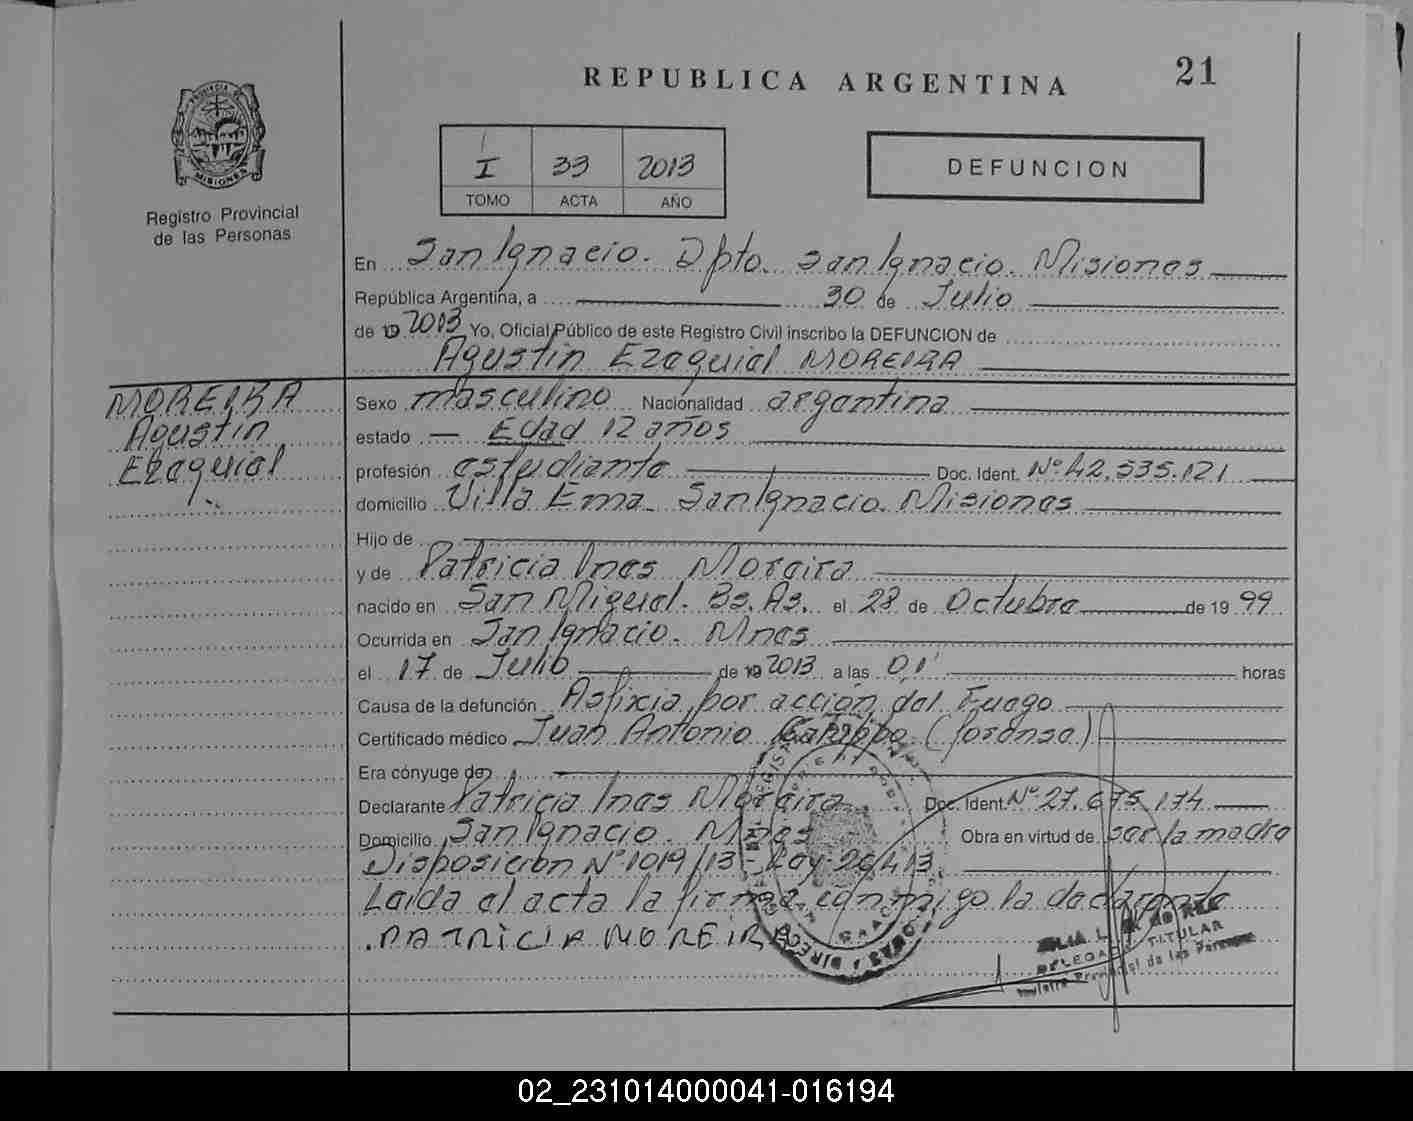 REPUBLICA ARGENTINA
21
PROVINCIA DE
MISIONES
Registro Provincial
de las Personas
I 33 2013
TOMO ACTA AÑO
DEFUNCION
En San Ignacio. Dpto. San Ignacio. Misiones
República Argentina, a 30 de Julio
de 19 2013 Yo, Oficial Público de este Registro Civil inscribo la DEFUNCION de
Agustin Ezequiel MOREIRA
MOREIRA
Agustin
Ezequiel
Sexo masculino Nacionalidad argentina
estado — Edad 12 años
profesión estudiante Doc. Ident. Nº 42.535.121
domicilio Villa Ema. San Ignacio. Misiones
Hijo de
y de Patricia Ines Moreira
nacido en San Miguel. Bs. As. el 28 de Octubre de 19 99
Ocurrida en San Ignacio. Mnes
el 17 de Julio de 19 2013 a las 01' horas
Causa de la defunción Asfixia por acción del Fuego
Certificado médico Juan Antonio (forense)
Era cónyuge de
Declarante Patricia Ines Moreira Doc. Ident. Nº 27.675.174
Domicilio San Ignacio. Mnes Obra en virtud de ser la madre
Disposicion Nº 1019/13 - Ley 26413
Leida el acta la firma conmigo la declarante
PATRICIA MOREIRA
DELEGADA TITULAR
Registro Provincial de las Personas
02_231014000041-016194